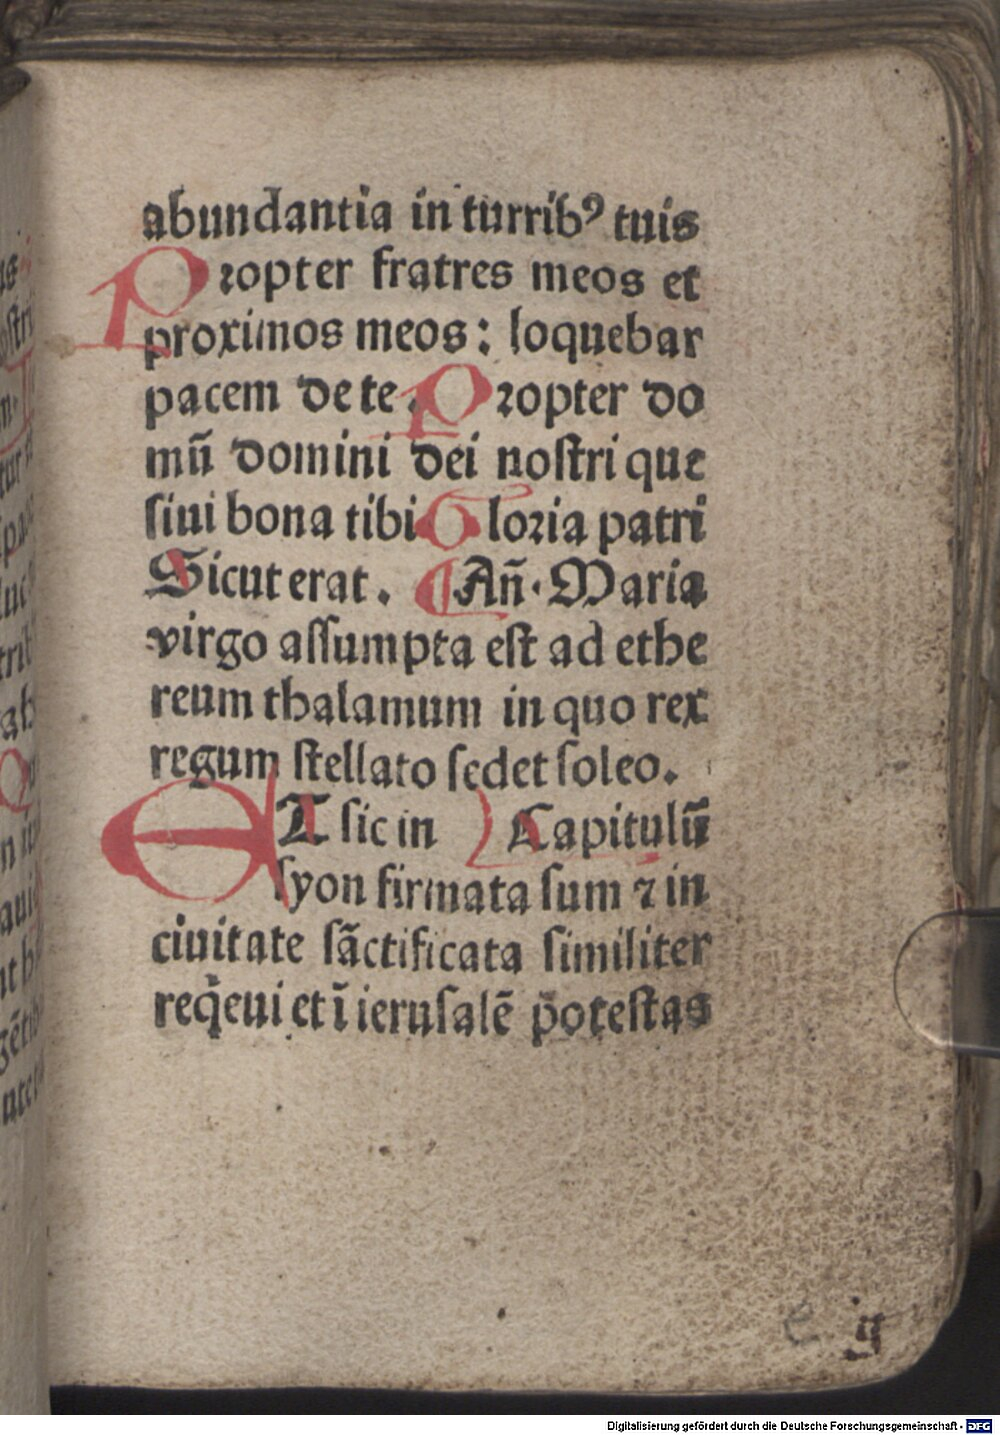 abundantia in turribꝰ tuis
Propter fratres meos et
proximos meos: loquebar
pacem de te. Propter do
mū domini dei nostri que
siui bona tibi Gloria patri
Sicut erat. ¶ An̄. Maria
virgo assumpta est ad ethe
reum thalamum in quo rex
regum stellato sedet soleo.
ET sic in Capitulū
syon firmata sum ⁊ in
ciuitate sāctificata similiter
req̄eui et ī ierusalē p̄otestas
e ij
Digitalisierung gefördert durch die Deutsche Forschungsgemeinschaft - DFG